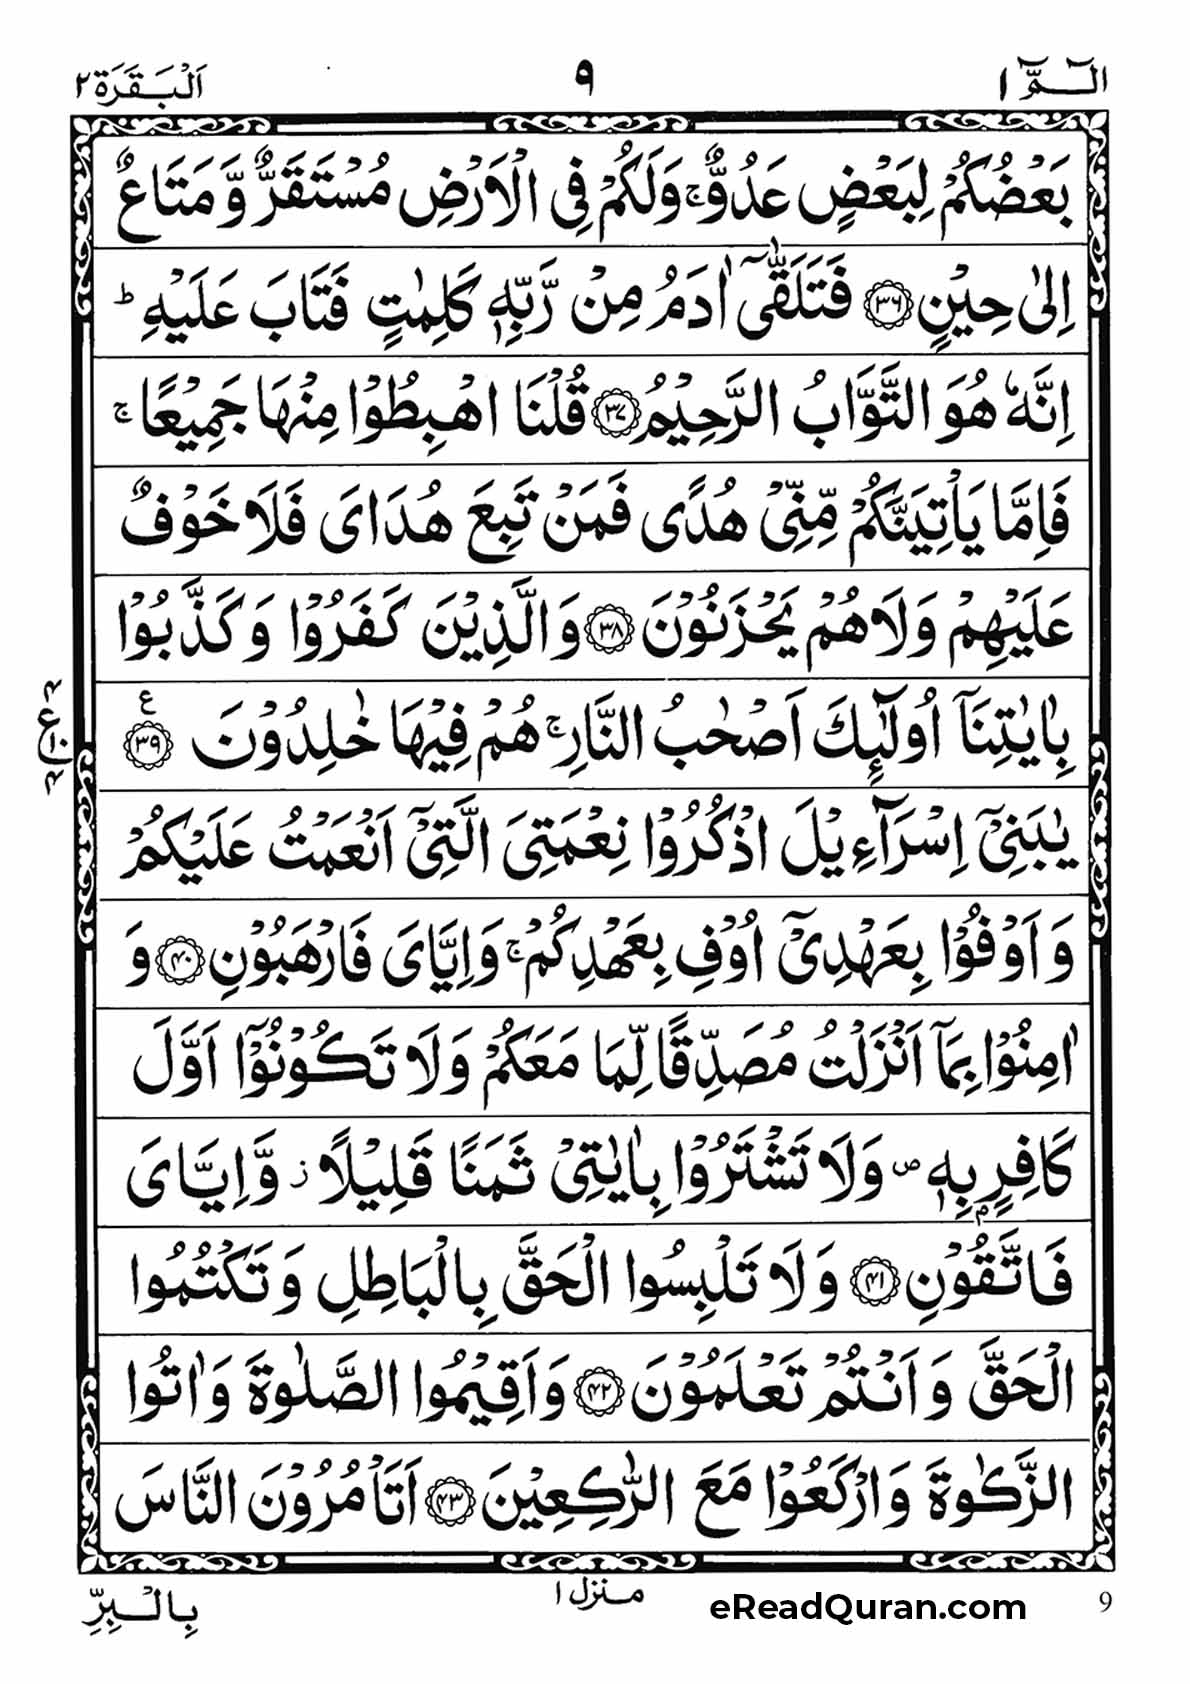 الٓمّٓ ١ ٩ اَلْبَقَرَة ٢
بَعْضُكُمْ لِبَعْضٍ عَدُوٌّ ۚ وَلَكُمْ فِی الْاَرْضِ مُسْتَقَرٌّ وَّ مَتَاعٌ
اِلٰی حِیْنٍ ﴿۳۶﴾ فَتَلَقّٰۤی اٰدَمُ مِنْ رَّبِّهٖ كَلِمٰتٍ فَتَابَ عَلَیْهِ ؕ
اِنَّهٗ هُوَ التَّوَّابُ الرَّحِیْمُ ﴿۳۷﴾ قُلْنَا اهْبِطُوْا مِنْهَا جَمِیْعًا ۚ
فَاِمَّا یَاْتِیَنَّكُمْ مِّنِّیْ هُدًی فَمَنْ تَبِعَ هُدَایَ فَلَا خَوْفٌ
عَلَیْهِمْ وَلَا هُمْ یَحْزَنُوْنَ ﴿۳۸﴾ وَالَّذِیْنَ كَفَرُوْا وَ كَذَّبُوْا
بِاٰیٰتِنَاۤ اُولٰٓئِكَ اَصْحٰبُ النَّارِ ۚ هُمْ فِیْهَا خٰلِدُوْنَ ﴿۳۹﴾ ع
یٰبَنِیْۤ اِسْرَآءِیْلَ اذْكُرُوْا نِعْمَتِیَ الَّتِیْۤ اَنْعَمْتُ عَلَیْكُمْ
وَ اَوْفُوْا بِعَهْدِیْۤ اُوْفِ بِعَهْدِكُمْ ۚ وَ اِیَّایَ فَارْهَبُوْنِ ﴿۴۰﴾ وَ
اٰمِنُوْا بِمَاۤ اَنْزَلْتُ مُصَدِّقًا لِّمَا مَعَكُمْ وَلَا تَكُوْنُوْۤا اَوَّلَ
كَافِرٍۭ بِهٖ ۪ وَلَا تَشْتَرُوْا بِاٰیٰتِیْ ثَمَنًا قَلِیْلًا ز وَّ اِیَّایَ
فَاتَّقُوْنِ ﴿۴۱﴾ وَلَا تَلْبِسُوا الْحَقَّ بِالْبَاطِلِ وَ تَكْتُمُوا
الْحَقَّ وَ اَنْتُمْ تَعْلَمُوْنَ ﴿۴۲﴾ وَ اَقِیْمُوا الصَّلٰوةَ وَ اٰتُوا
الزَّكٰوةَ وَ ارْكَعُوْا مَعَ الرّٰكِعِیْنَ ﴿۴۳﴾ اَتَاْمُرُوْنَ النَّاسَ
۴
ع
۱۰
۴
بِالْبِرِّ منزل ١ eReadQuran.com 9